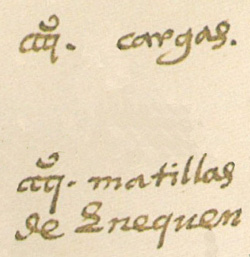 cargas.
matillas
de Enequen